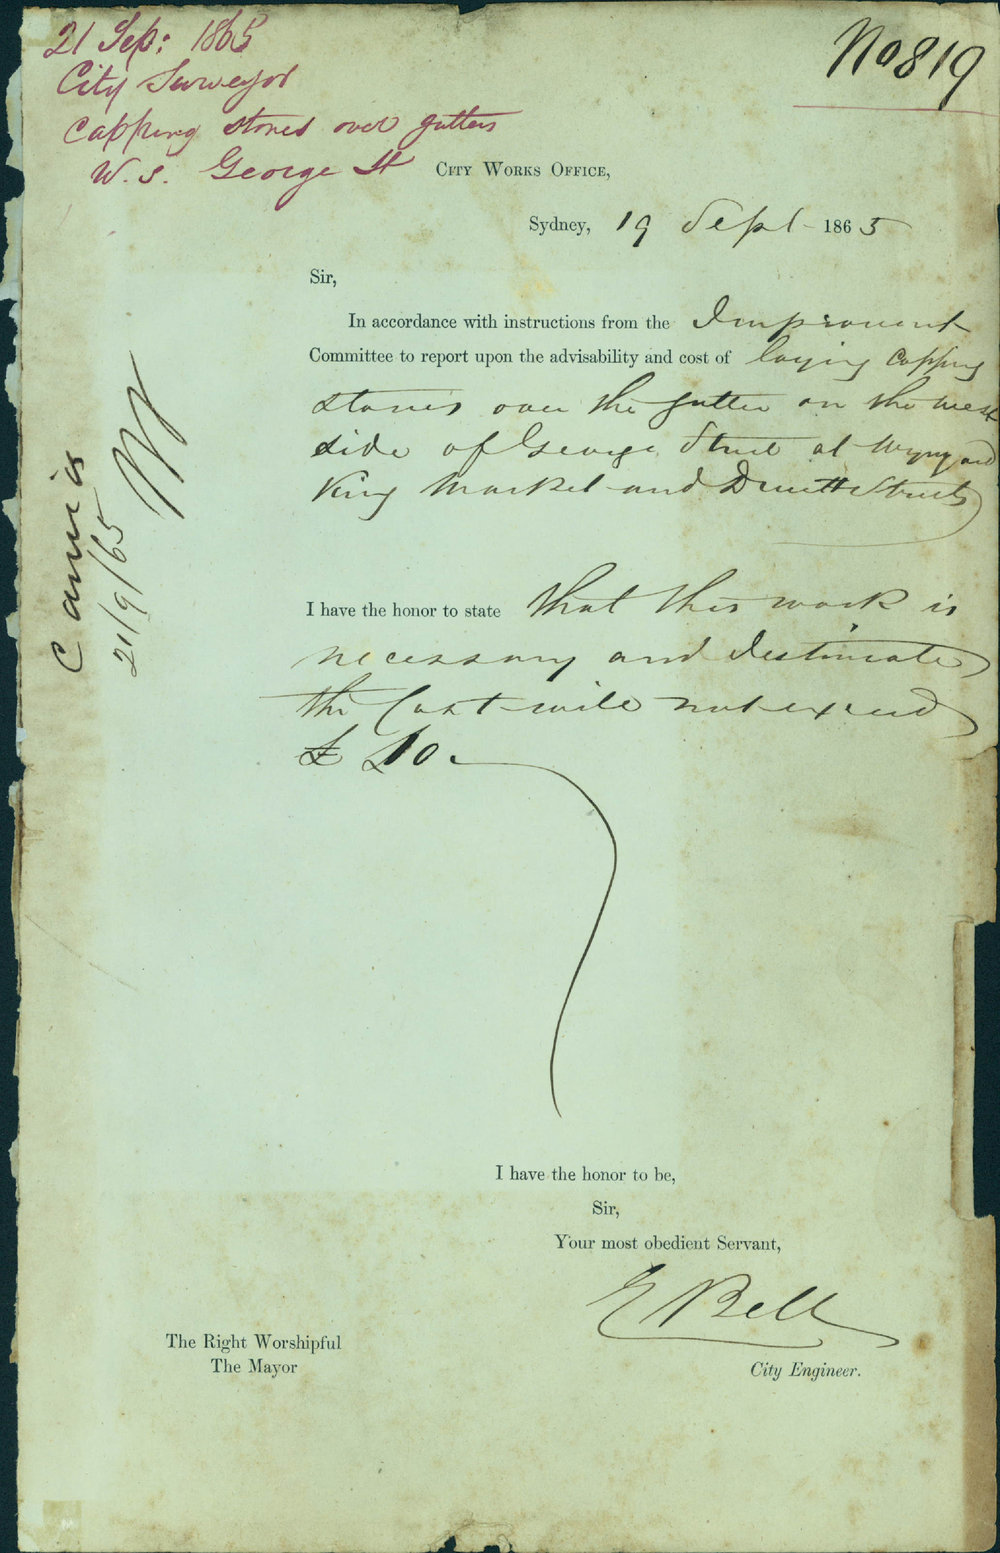 21 Sep: 1865
City Surveyor
Capping stones over gutters
W. S. George St
No 819
CITY WORKS OFFICE,
Sydney, 19 Sept 1865
Sir,
In accordance with instructions from the Improvement
Committee to report upon the advisability and cost of laying Capping
stones over the gutter on the west
side of George Street at Wynyard
King Market and Druitt Streets
I have the honor to state that this work is
necessary and I estimate
the Cost will not exceed
£ 10.
21/9/65
I have the honor to be,
Sir,
Your most obedient Servant,
E Bell
City Engineer.
The Right Worshipful
The Mayor